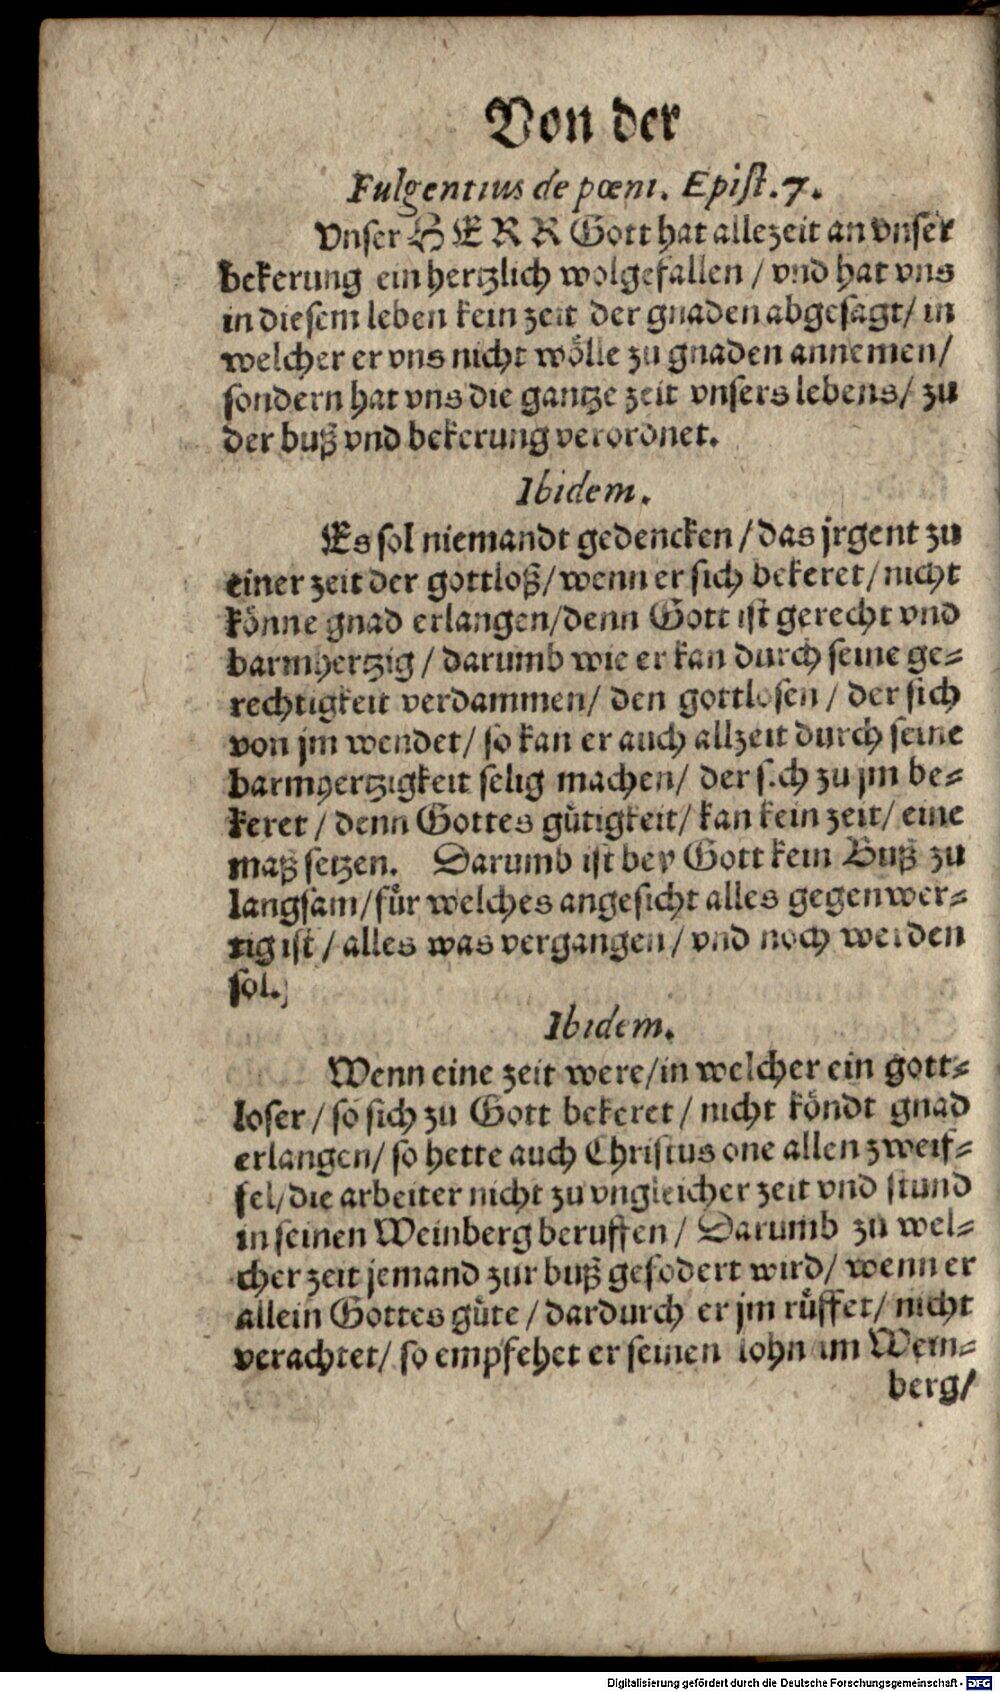 Von der
Fulgentius de pœni. Epist. 7.
Vnser HERR Gott hat allezeit an vnser
bekerung ein hertzlich wolgefallen / vnd hat vns
in diesem leben kein zeit der gnaden abgesagt / in
welcher er vns nicht wölle zu gnaden annemen /
sondern hat vns die gantze zeit vnsers lebens / zu
der buß vnd bekerung verordnet.
Ibidem.
Es sol niemandt gedencken / das jrgent zu
einer zeit der gottloß / wenn er sich bekeret / nicht
könne gnad erlangen / denn Gott ist gerecht vnd
barmhertzig / darumb wie er kan durch seine ge-
rechtigkeit verdammen / den gottlosen / der sich
von jm wendet / so kan er auch allzeit durch seine
barmhertzigkeit selig machen / der sich zu jm be-
keret / denn Gottes gütigkeit / kan kein zeit / eine
maß setzen. Darumb ist bey Gott kein Buß zu
langsam / für welches angesicht alles gegenwer-
tig ist / alles was vergangen / vnd noch werden
sol.
Ibidem.
Wenn eine zeit were / in welcher ein gott-
loser / so sich zu Gott bekeret / nicht köndt gnad
erlangen / so hette auch Christus one allen zweif-
fel / die arbeiter nicht zu vngleicher zeit vnd stund
in seinen Weinberg beruffen / Darumb zu wel-
cher zeit jemand zur buß gefodert wird / wenn er
allein Gottes güte / dardurch er jm rüffet / nicht
verachtet / so empfehet er seinen lohn im Wein-
berg /
Digitalisierung gefördert durch die Deutsche Forschungsgemeinschaft - DFG